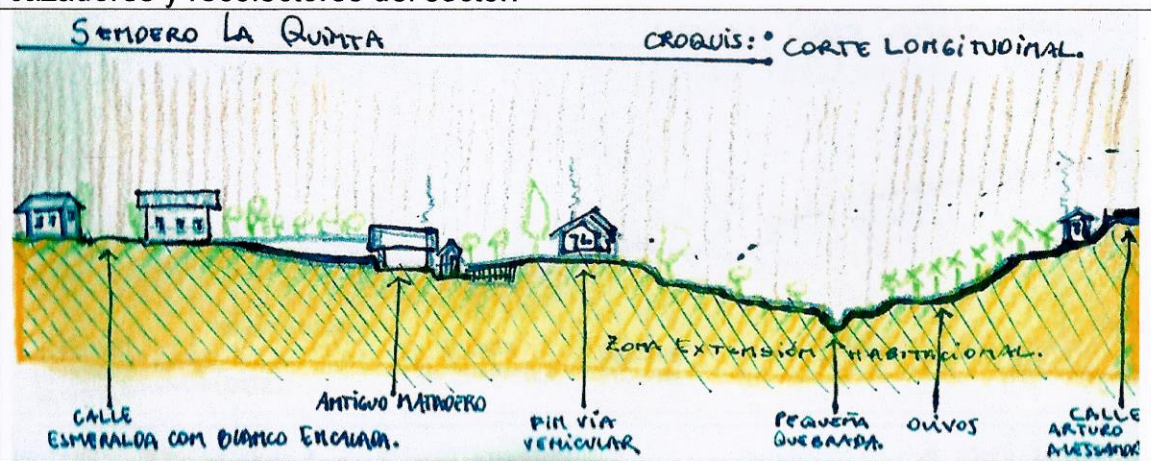 cazadores y recolectores del sector.
SENDERO LA QUINTA
CROQUIS: CORTE LONGITUDINAL.
ZONA EXTENSIÓN HABITACIONAL.
CALLE
ESMERALDA CON BLANCO ENCALADA.
ANTIGUO MATADERO
FIN VÍA
VEHICULAR
PEQUEÑA
QUEBRADA.
OLIVOS
CALLE
ARTURO
ALESSANDR